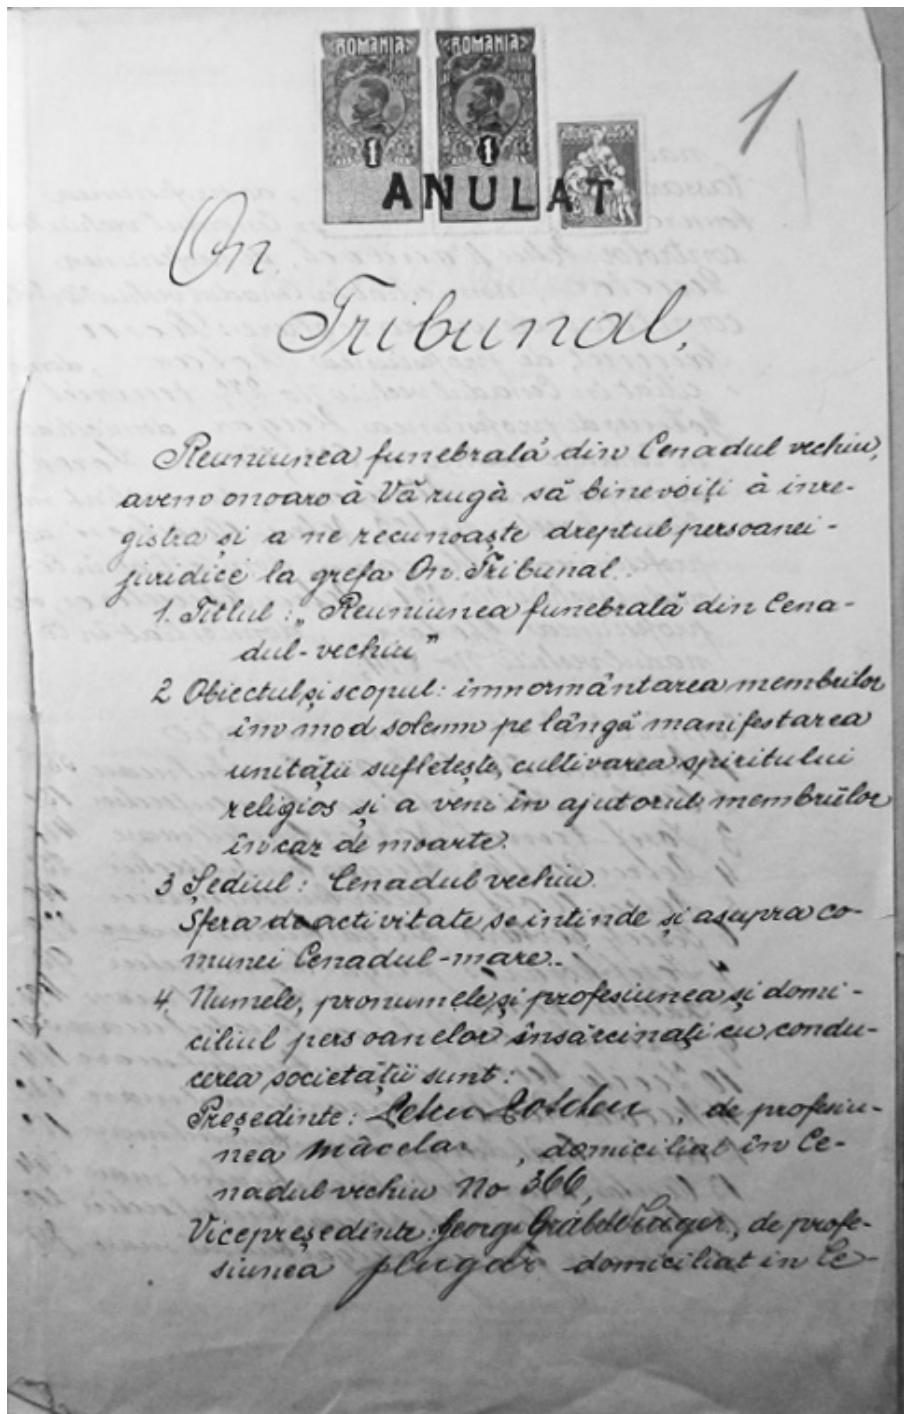 ROMANIA ROMANIA
1 1
1
ANULAT
On.
Tribunal,
Reuniunea funebrală din Cenadul vechiu,
avend onoare à Vă rugà să binevoiți à inre-
gistra și a ne recunoaște dreptul persoanei-
juridice la grefa On. Tribunal.
1. Titlul: „Reuniunea funebrală din Cena-
dul-vechiu"
2 Obiectul și scopul: immormântarea membrilor
în mod solemn pe lângă manifestarea
unității sufletește, cultivarea spiritului
religios și a veni în ajutorul membrilor
în caz de moarte.
3 Sediul: Cenadul vechiu.
Sfera de activitate se intinde și asupra co-
munei Cenadul-mare.
4. Numele, pronumele și profesiunea și domi-
ciliul persoanelor însărcinați cu condu-
cerea societății sunt:
Președinte: , de profesiu-
nea măcelar, domiciliat în Ce-
nadul vechiu No 366,
Vicepreședinte: Georg , de profe-
siunea plugar domiciliat in Ce-